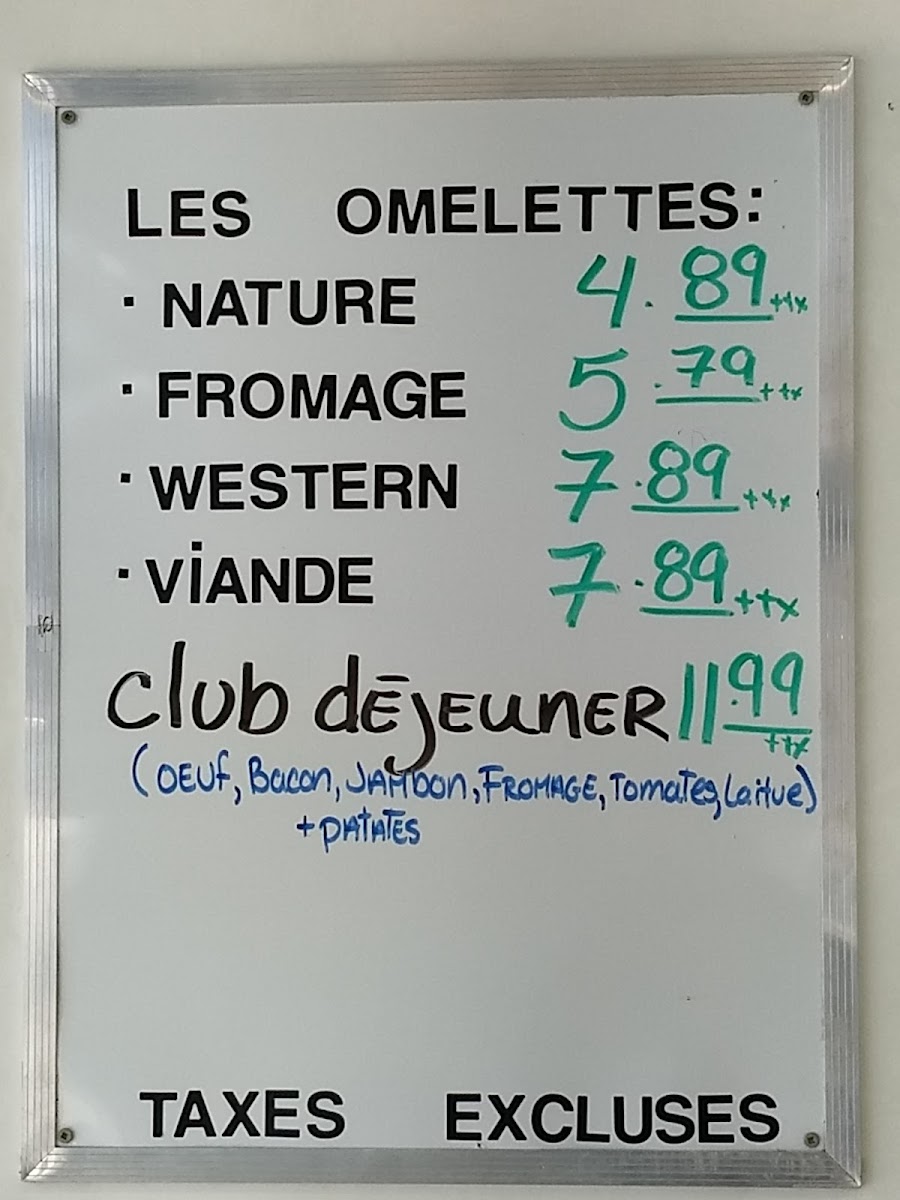 LES OMELETTES:
· NATURE 4.89 +tx
· FROMAGE 5.79 +tx
· WESTERN 7.89 +tx
· VIANDE 7.89 +tx
club déjeuner 11.99 +tx
(OEUf, Bacon, JAMBON, FROMAGE, Tomates, Laitue)
+ PATATES
TAXES EXCLUSES